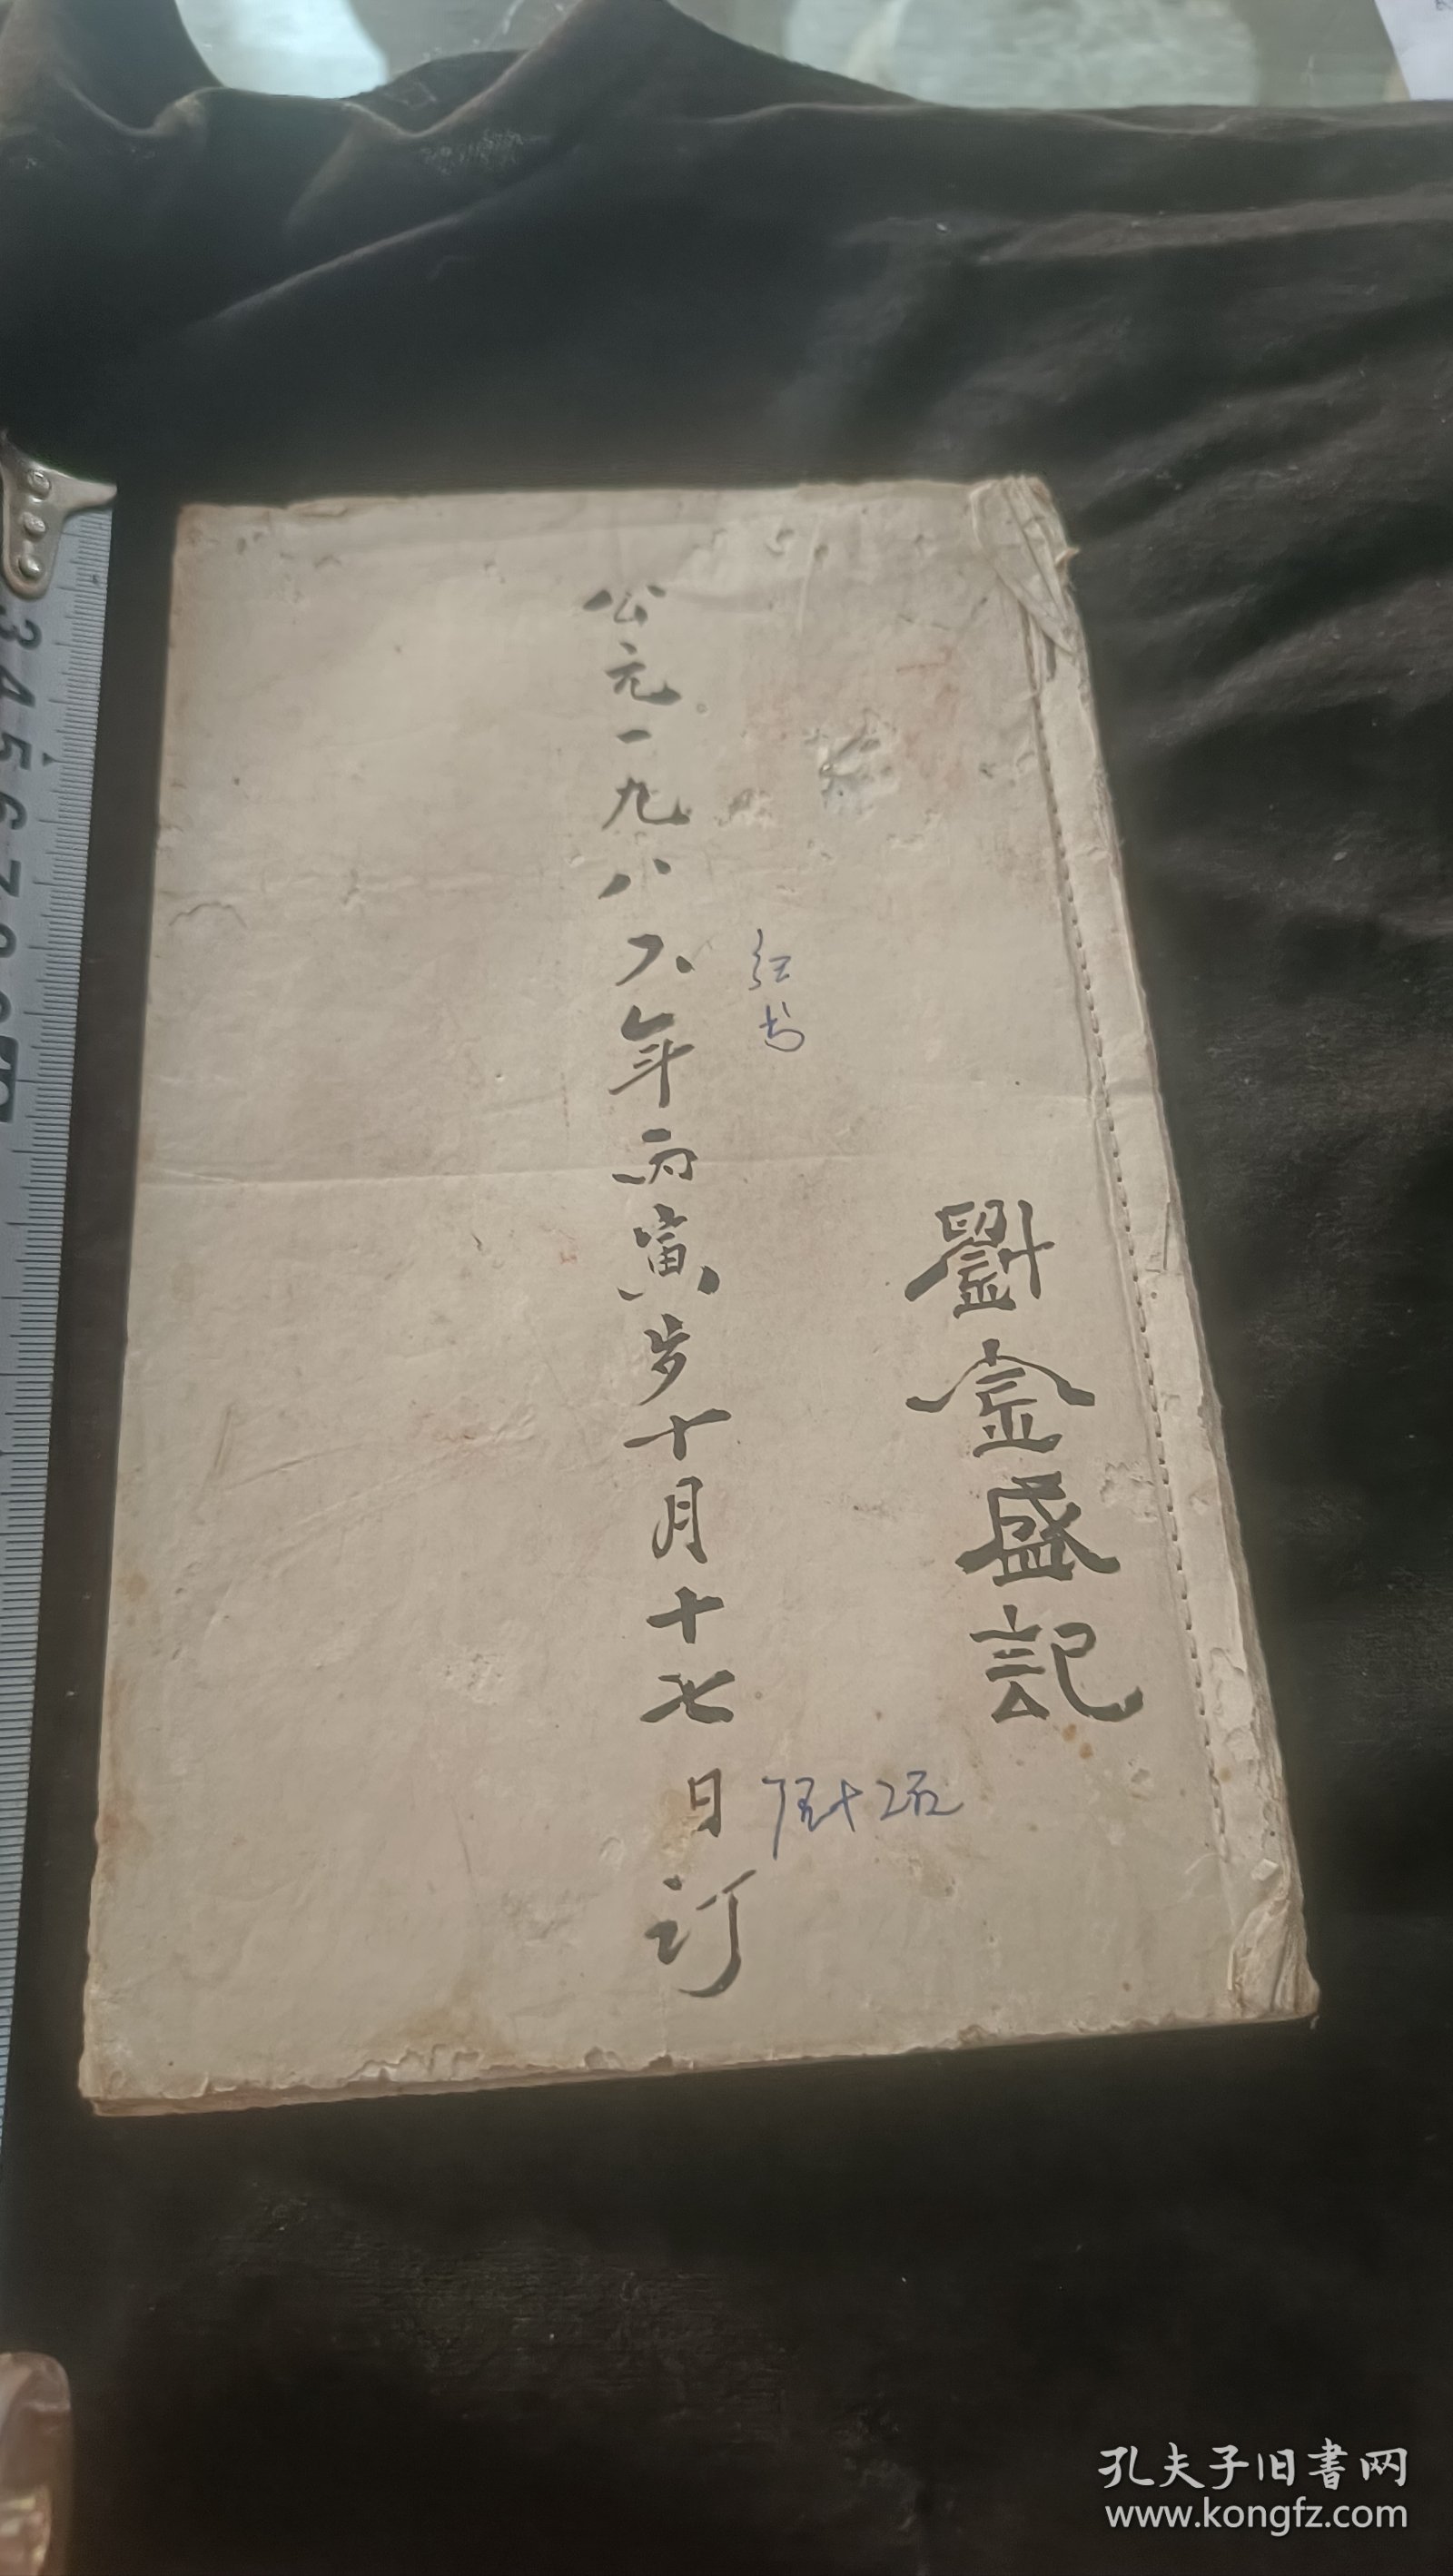 劉金盛記
红书
公元一九八六年丙寅岁十月十七日订
3 4 5 6 7 8 9
孔夫子旧書网
www.kongfz.com